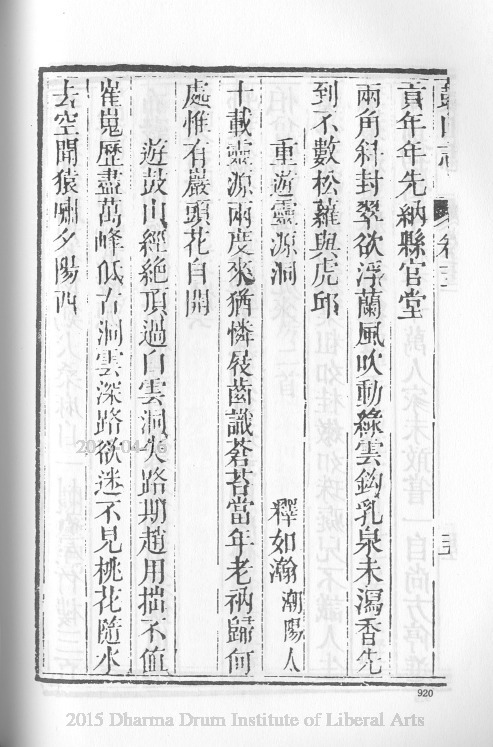 貢年年先納縣官堂
兩角斜封翠欲浮蘭風吹動綠雲鈎乳泉未瀉香先
到不數松蘿與虎邱
重遊靈源洞
釋如瀚潮陽人
十載靈源兩度來猶憐屐齒識蒼苔當年老衲歸何
處惟有巖頭花自開
遊鼓山經絕頂過白雲洞失路期趙用拙不值
崔嵬歷盡萬峰低古洞雲深路欲迷不見桃花隨水
去空聞猿嘯夕陽西
920
2015 Dharma Drum Institute of Liberal Arts